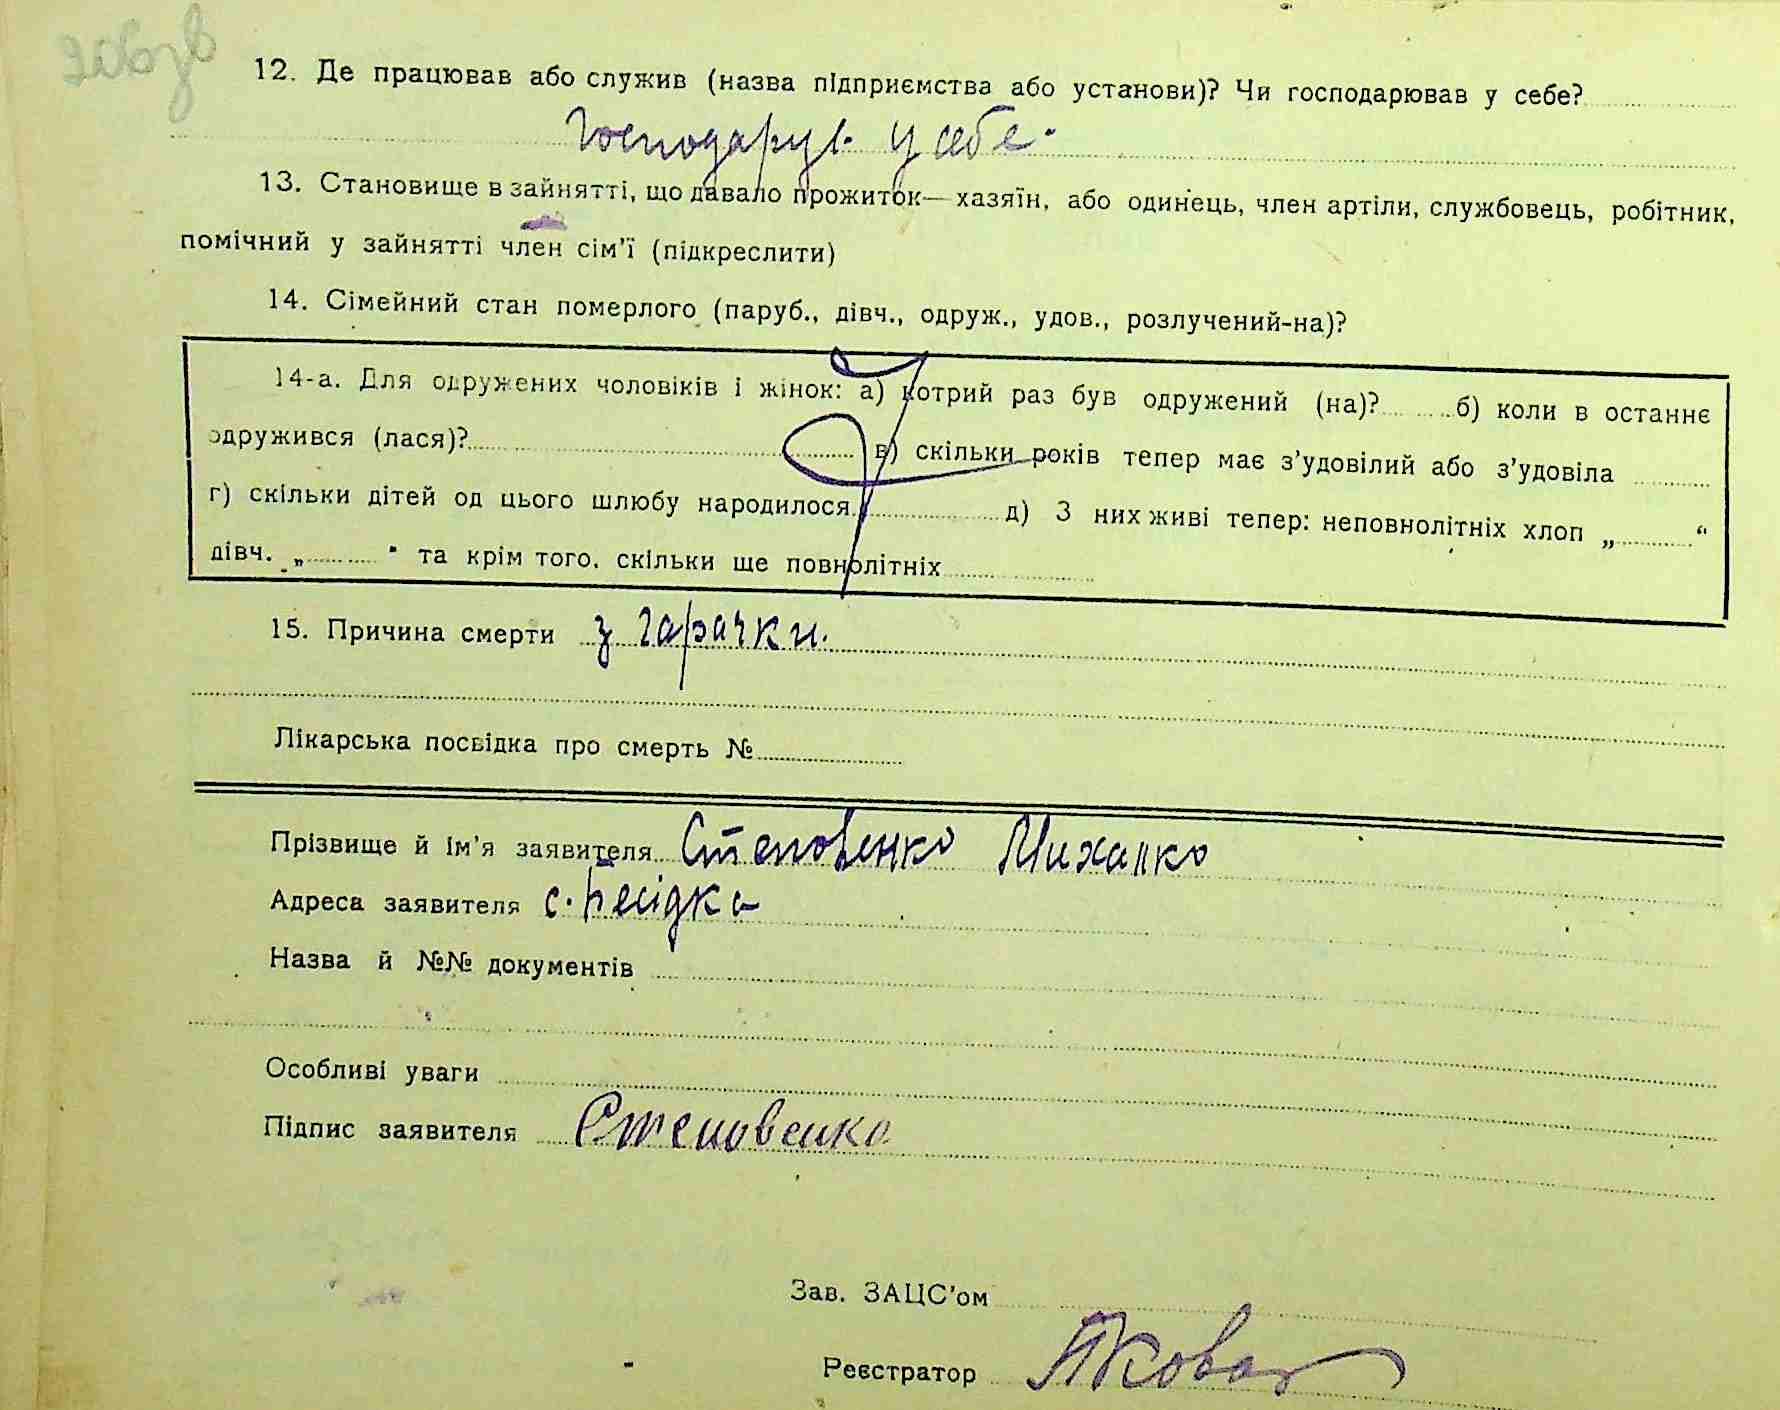 12. Де працював або служив (назва підприємства або установи)? Чи господарював у себе?
Господарув. у себе.
13. Становище в зайнятті, що давало прожиток— хазяїн, або одинець, член артіли, службовець, робітник,
помічний у зайнятті член сім'ї (підкреслити)
14. Сімейний стан померлого (паруб., дівч., одруж., удов., розлучений-на)?
14-а. Для одружених чоловіків і жінок: а) котрий раз був одружений (на)? б) коли в останнє
одружився (лася)? в) скільки років тепер має з'удовілий або з'удовіла
г) скільки дітей од цього шлюбу народилося д) З них живі тепер: неповнолітніх хлоп „ “
дівч. „ “ та крім того, скільки ще повнолітніх
15. Причина смерти з гарачки.
Лікарська посвідка про смерть №
Прізвище й ім'я заявителя Степовенко Михалко
Адреса заявителя с. Бесідка
Назва й №№ документів
Особливі уваги
Підпис заявителя Степовенко
Зав. ЗАЦС'ом
Реєстратор